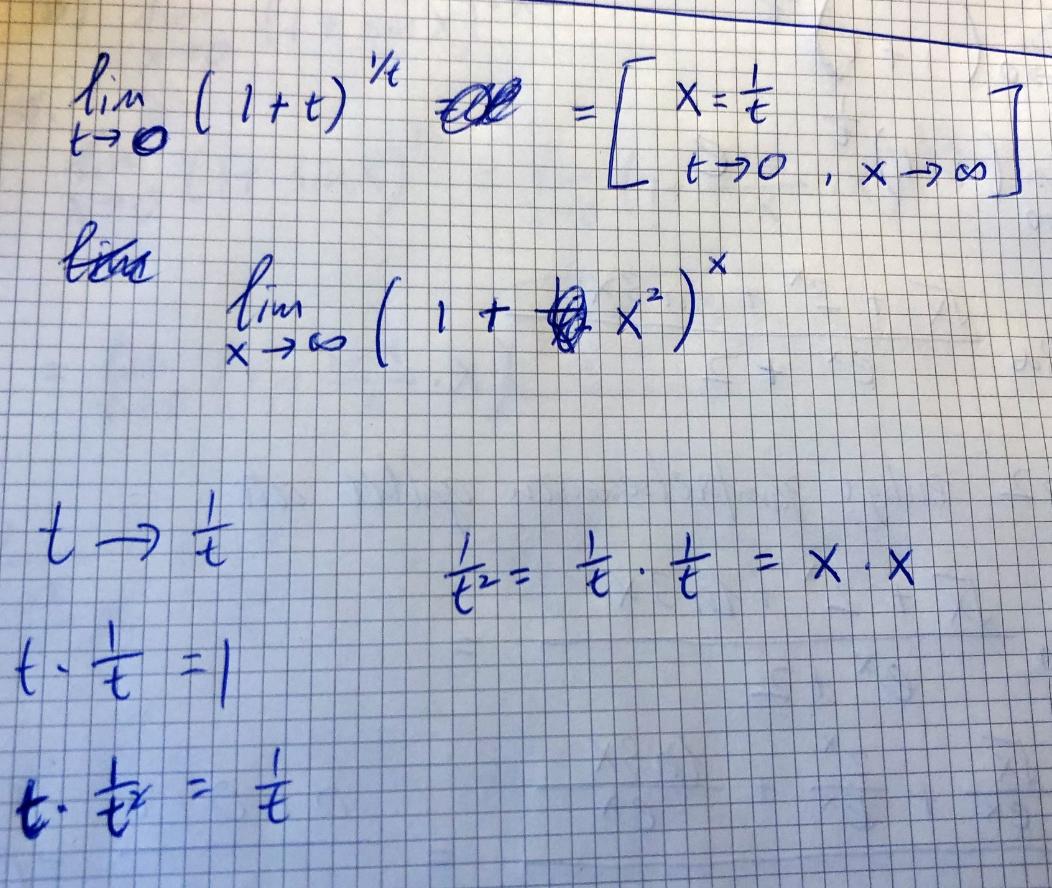 lim t→0 (1+t)^1/t = [ x = 1/t
t→0 , x→∞ ]
lim x→∞ ( 1 + x² )^x
t → 1/t
1/t² = 1/t · 1/t = x · x
t · 1/t = 1
t · 1/t² = 1/t